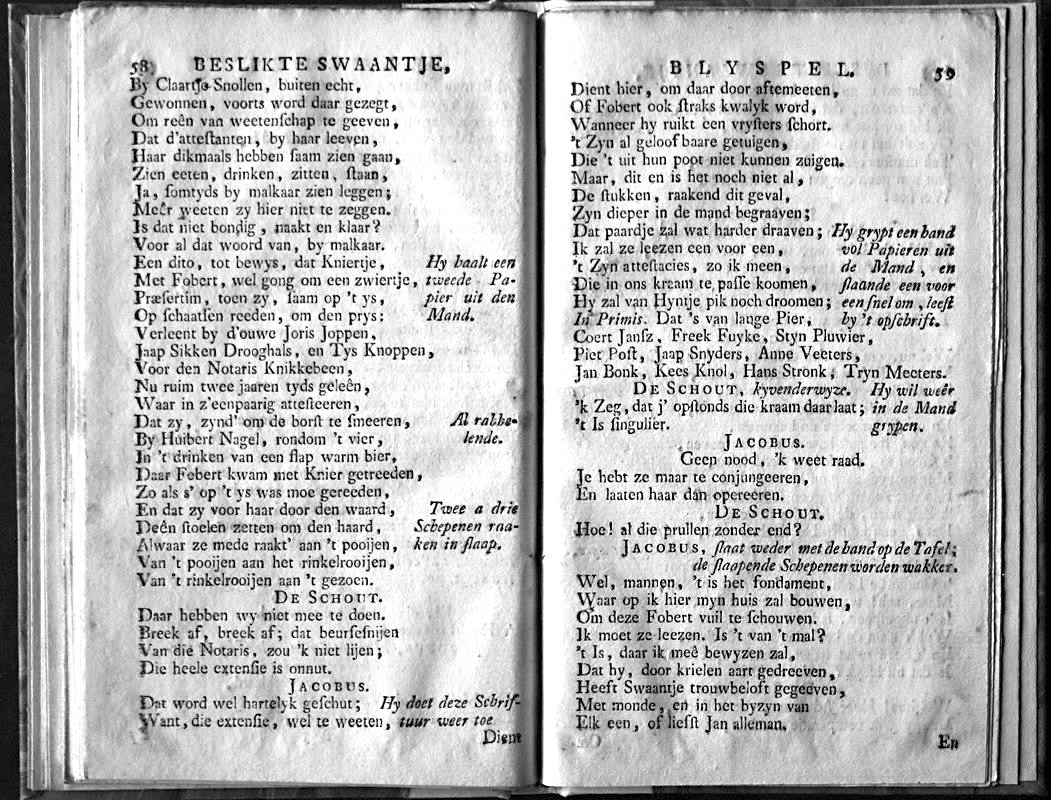 58 BESLIKTE SWAANTJE,
By Claartje Snollen, buiten echt,
Gewonnen, voorts word daar gezegt,
Om reên van weetenſchap te geeven,
Dat d'atteſtanten, by haar leeven,
Haar dikmaals hebben ſaam zien gaan,
Zien eeten, drinken, zitten, ſtaan,
Ja, ſomtyds by malkaar zien leggen;
Meêr weeten zy hier niet te zeggen.
Is dat niet bondig, naakt en klaar?
Voor al dat woord van, by malkaar.
Een dito, tot bewys, dat Kniertje, Hy haalt een
Met Fobert, wel gong om een zwiertje, tweede Pa-
Præſertim, toen zy, ſaam op 't ys, pier uit den
Op ſchaatſen reeden, om den prys: Mand.
Verleent by d'ouwe Joris Joppen,
Jaap Sikken Drooghals, en Tys Knoppen,
Voor den Notaris Knikkebeen,
Nu ruim twee jaaren tyds geleên,
Waar in z'eenpaarig atteſteeren,
Dat zy, zynd' om de borſt te ſmeeren, Al rabbe-
By Huibert Nagel, rondom 't vier, lende.
In 't drinken van een flap warm bier,
Daar Fobert kwam met Knier getreeden,
Zo als s' op 't ys was moe gereeden,
En dat zy voor haar door den waard, Twee a drie
Deên ſtoelen zetten om den haard, Schepenen raa-
Alwaar ze mede raakt' aan 't pooijen, ken in ſlaap.
Van 't pooijen aan het rinkelrooijen,
Van 't rinkelrooijen aan 't gezoen.
DE SCHOUT.
Daar hebben wy niet mee te doen.
Breek af, breek af; dat beurſeſnijen
Van die Notaris, zou 'k niet lijen;
Die heele extenſie is onnut.
JACOBUS.
Dat word wel hartelyk geſchut; Hy doet deze Schrif-
Want, die extenſie, wel te weeten, tuur weer toe
Dient
BLYSPEL. 59
Dient hier, om daar door aftemeeten,
Of Fobert ook ſtraks kwalyk word,
Wanneer hy ruikt een vryſters ſchort.
't Zyn al geloofbaare getuigen,
Die 't uit hun poot niet kunnen zuigen.
Maar, dit en is het noch niet al,
De ſtukken, raakend dit geval,
Zyn dieper in de mand begraaven;
Dat paardje zal wat harder draaven; Hy grypt een hand
Ik zal ze leezen een voor een, vol Papieren uit
't Zyn atteſtacies, zo ik meen, de Mand, en
Die in ons kraam te paſſe koomen, ſlaande een voor
Hy zal van Hyntje pik noch droomen; een ſnel om, leeſt
In Primis. Dat 's van lange Pier, by 't opſchrift.
Coert Janſz, Freek Fuyke, Styn Pluwier,
Piet Poſt, Jaap Snyders, Anne Veeters,
Jan Bonk, Kees Knol, Hans Stronk, Tryn Meeters.
DE SCHOUT, kyvenderwyze. Hy wil weêr
'k Zeg, dat j' opſtonds die kraam daar laat; in de Mand
't Is ſingulier. grypen.
JACOBUS.
Geen nood, 'k weet raad.
Je hebt ze maar te conjungeeren,
En laaten haar dan opereeren.
DE SCHOUT.
Hoe! al die prullen zonder end?
JACOBUS, ſlaat weder met de hand op de Tafel;
de ſlaapende Schepenen worden wakker.
Wel, mannen, 't is het fondament,
Waar op ik hier myn huis zal bouwen,
Om deze Fobert vuil te ſchouwen.
Ik moet ze leezen. Is 't van 't mal?
't Is, daar ik meê bewyzen zal,
Dat hy, door krielen aart gedreeven,
Heeft Swaantje trouwbeloft gegeeven,
Met monde, en in het byzyn van
Elk een, of liefſt Jan alleman.
En